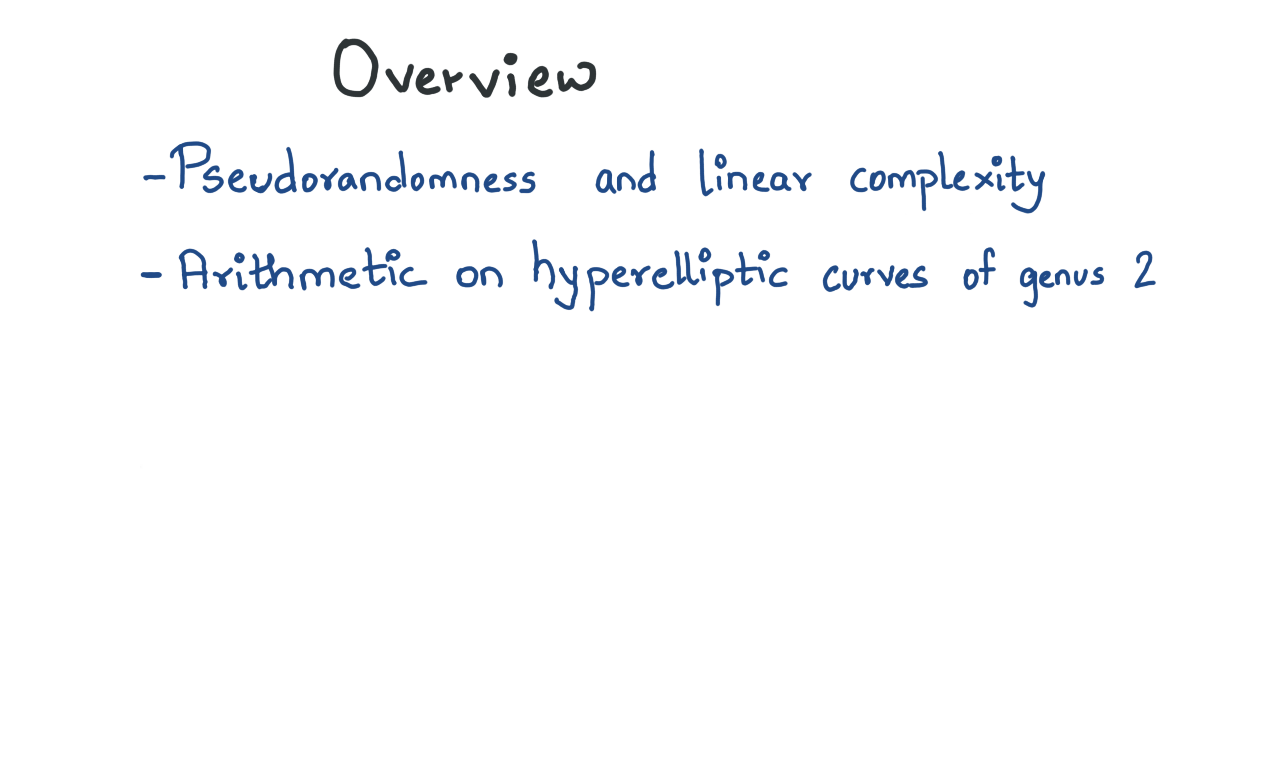 Overview
- Pseudorandomness and linear complexity
- Arithmetic on hyperelliptic curves of genus 2